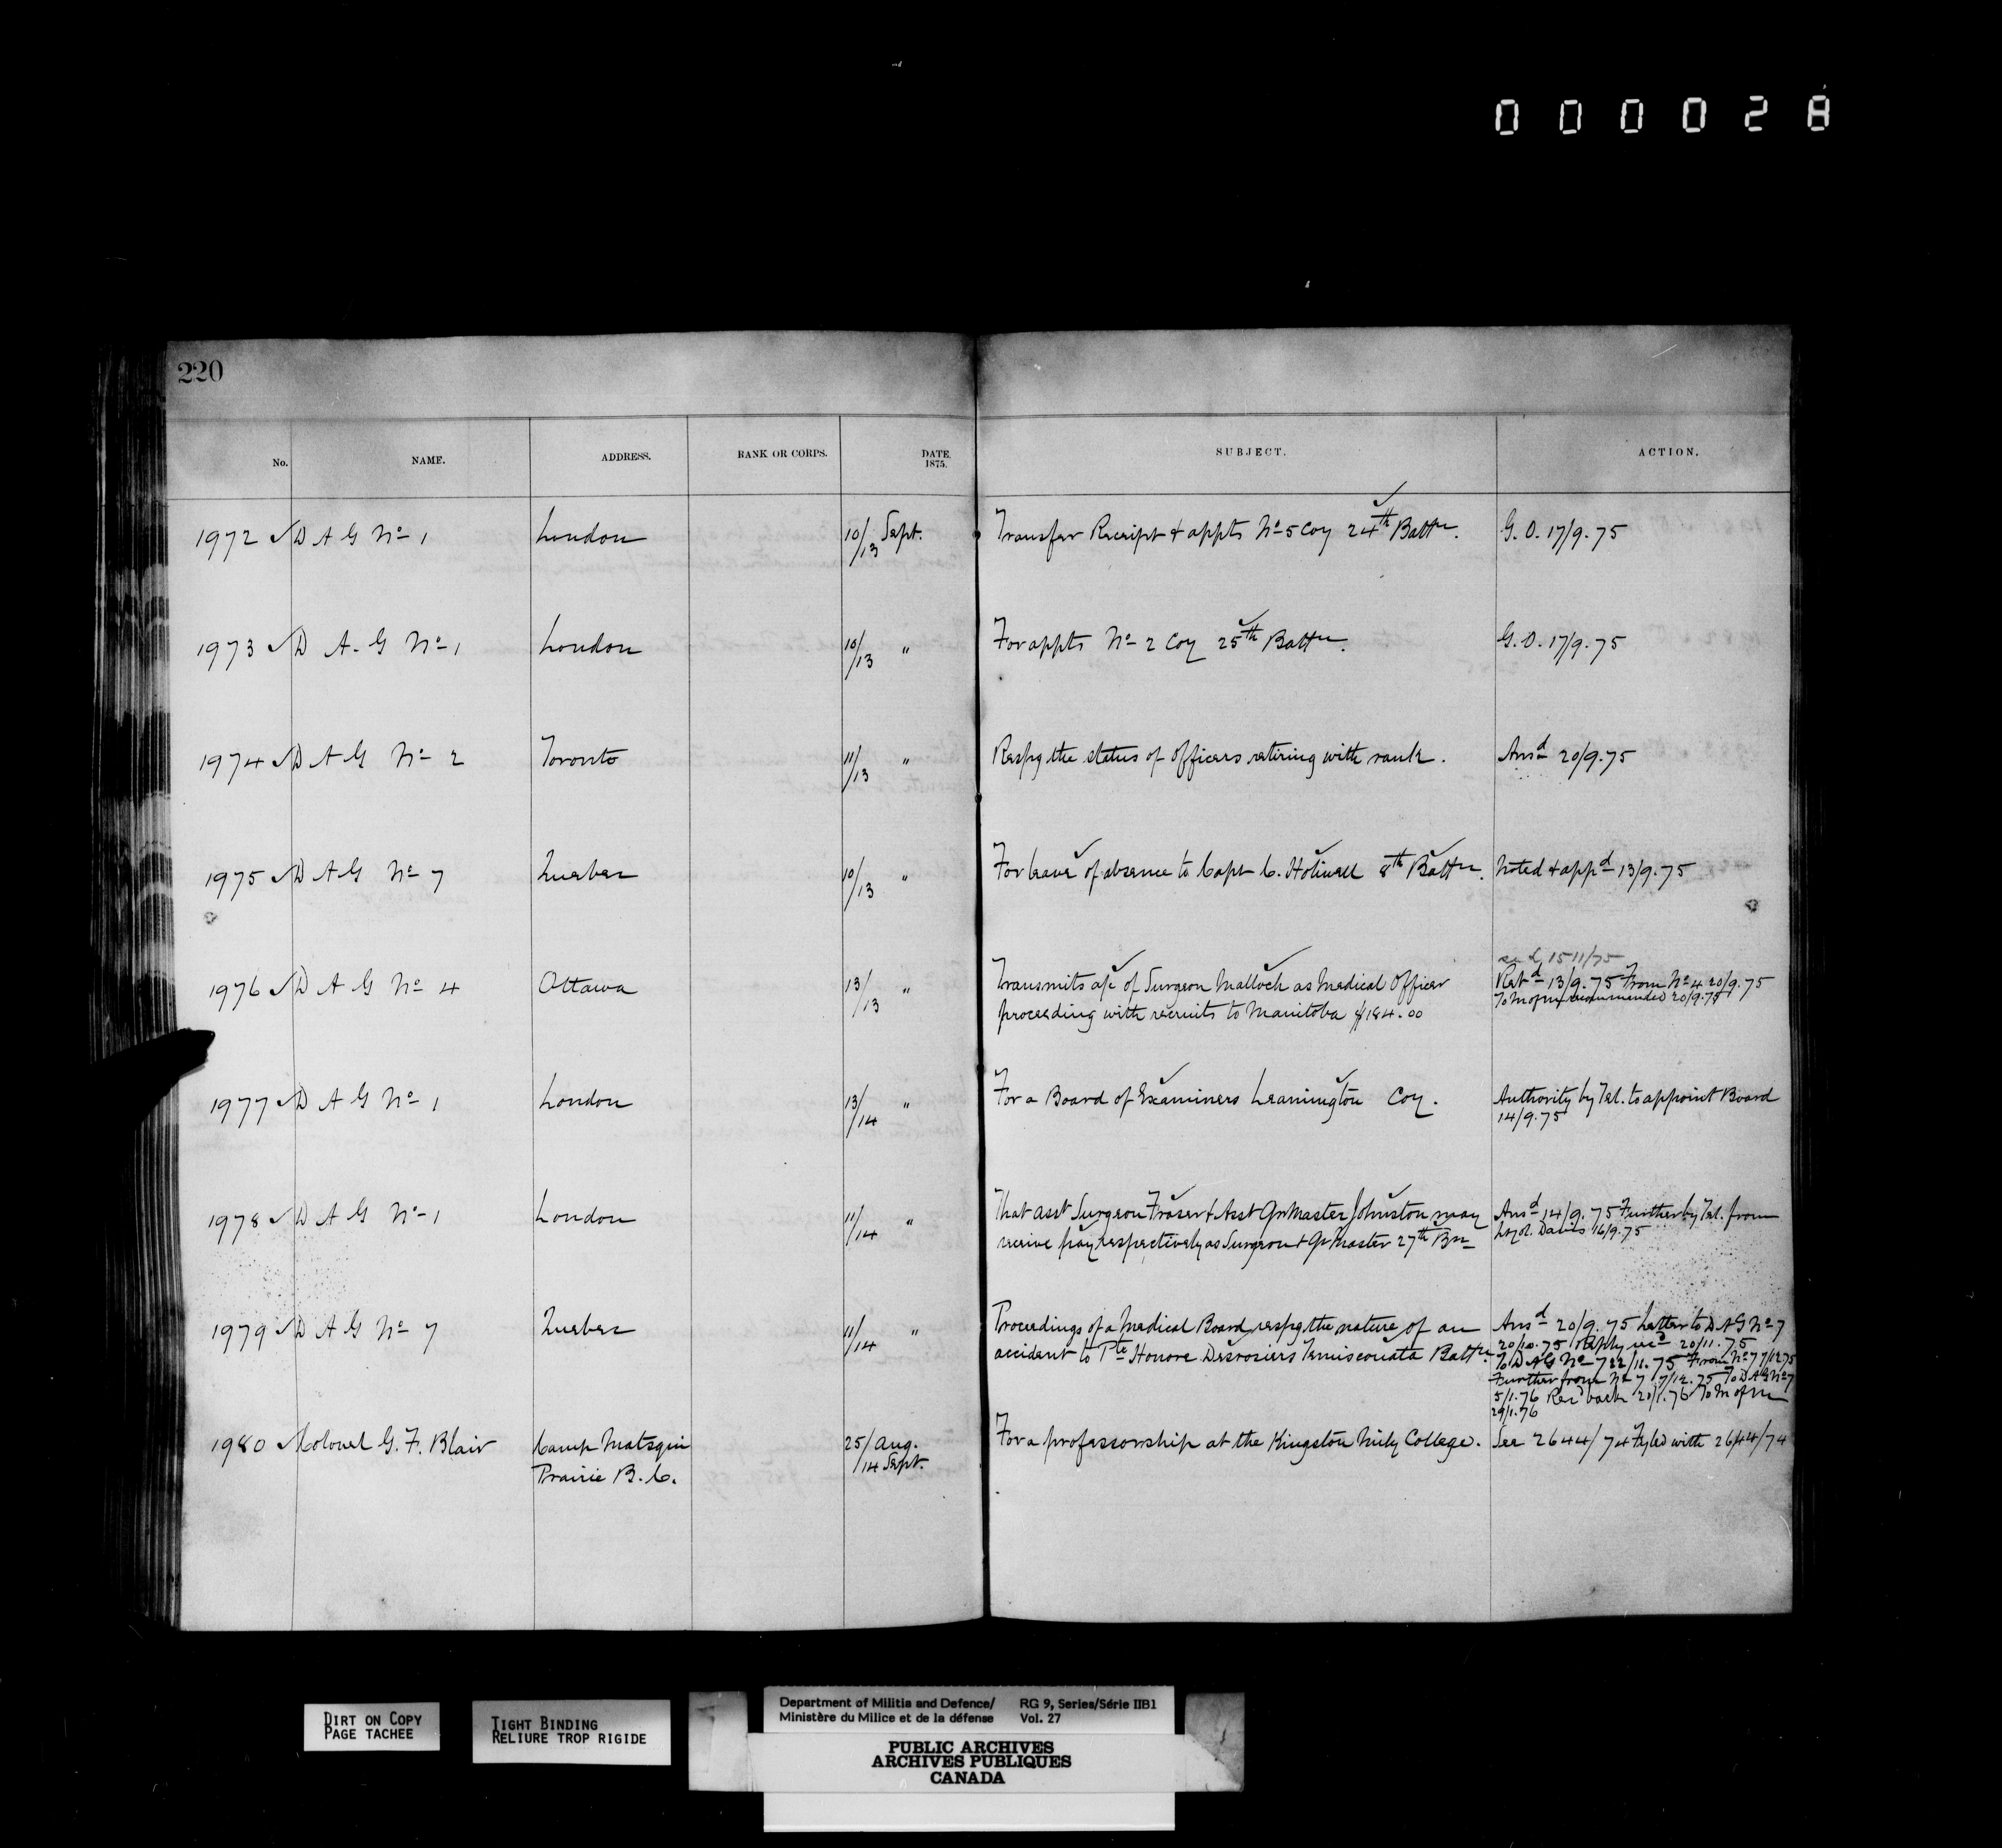 000028
220
No. NAME. ADDRESS. RANK OR CORPS. DATE. 1875. SUBJECT. ACTION.
1972 D A G No 1 London 10/13 Sept. Transfer Receipt & appts No 5 Coy 24th Battn. G. O. 17/9.75
1973 D A. G No 1 London 10/13 " For appts No 2 Coy 25th Battn. G. O. 17/9.75
1974 D A G No 2 Toronto 11/13 " Respg the status of Officers retiring with rank. Ansd 20/9.75
1975 D A G No 7 Quebec 10/13 " For leave of absence to Capt C. Holiwell 8th Battn. Noted & appd 13/9.75
15 11/75
1976 D A G No 4 Ottawa 13/13 " Transmits a/c of Surgeon Malloch as Medical Officer Retd 13/9.75 From No 4 20/9.75
proceeding with recruits to Manitoba $184.00 To M of M recommended 20/9.75
1977 D A G No 1 London 13/14 " For a Board of Examiners Leamington Coy. Authority by Tel. to appoint Board
14/9.75
1978 D A G No 1 London 11/14 " That asst Surgeon Fraser & Asst Qr Master Johnston may Ansd 14/9.75 Further by Tel. from
receive pay respectively as Surgeon & Qr Master 27th Bn Davis 16/9.75
1979 D A G No 7 Quebec 11/14 " Proceedings of a Medical Board respg the nature of an Ansd 20/9.75 Letter to D A G No 7
accident to Pte Honore Desrosiers Temiscouata Battn. 20/10.75 Reply recd 20/11.75
To D A G No 7 22/11.75 From No 7 7/12 75
Further from No 7 7/12.75 To D A G No 7
5/1.76 Recd back 20/1.76 To M of M
29/1.76
1980 Colonel G. F. Blair Camp Matsqui 25/Aug. For a professorship at the Kingston Mily College. See 2644/74 Fyled with 2644/74
Prairie B. C. /14 Sept.
DIRT ON COPY
PAGE TACHEE
TIGHT BINDING
RELIURE TROP RIGIDE
Department of Militia and Defence/ RG 9, Series/Série IIB1
Ministère du Milice et de la défense Vol. 27
PUBLIC ARCHIVES
ARCHIVES PUBLIQUES
CANADA